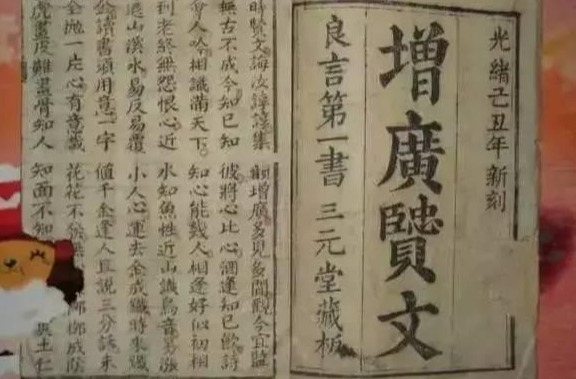 光緒己丑年新刻
增廣賢文
良言第一書 三元堂藏板
時賢文誨汝諄諄集韻增廣多見多聞觀今宜監
無古不成今知己知彼將心比心酒逢知己飲詩
會人吟相識滿天下。知心能幾人相逢好似初相
到老終無怨恨心近水知魚性近山識鳥音易漲
退山溪水易反易覆小人心運去金成鐵時來鐵
金讀書須用意一字值千金逢人且說三分話未
全拋一片心有意栽花花不發無柳成陰
虎畫皮難畫骨知人知面不知土仁